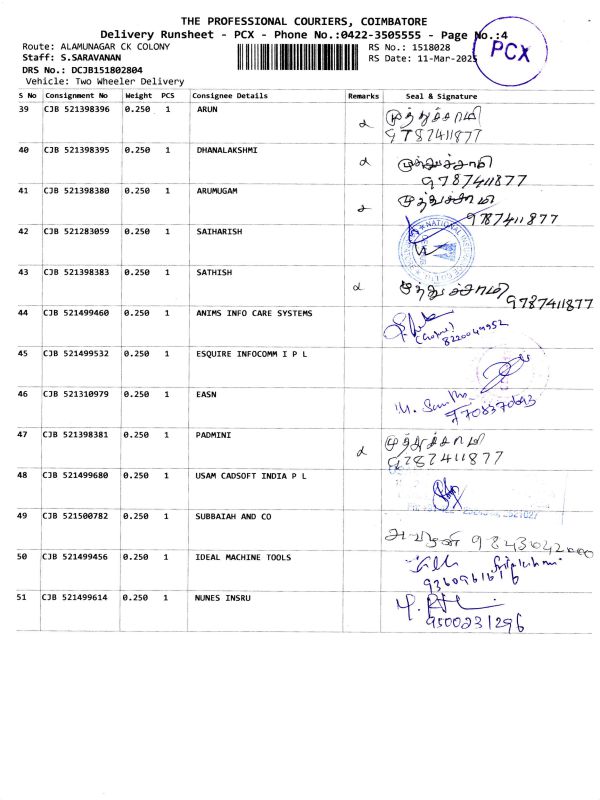 THE PROFESSIONAL COURIERS, COIMBATORE
Delivery Runsheet - PCX - Phone No.:0422-3505555 - Page No.:4
PCX
Route: ALAMUNAGAR CK COLONY RS No.: 1518028
Staff: S.SARAVANAN RS Date: 11-Mar-2025
DRS No.: DCJB151802804
Vehicle: Two Wheeler Delivery
S No Consignment No Weight PCS Consignee Details Remarks Seal & Signature
39 CJB 521398396 0.250 1 ARUN முத்துச்சாமி
9787411877
40 CJB 521398395 0.250 1 DHANALAKSHMI முத்துச்சாமி
9787411877
41 CJB 521398380 0.250 1 ARUMUGAM முத்துச்சாமி
9787411877
42 CJB 521283059 0.250 1 SAIHARISH
43 CJB 521398383 0.250 1 SATHISH முத்துச்சாமி
9787411877
44 CJB 521499460 0.250 1 ANIMS INFO CARE SYSTEMS
8220049952
45 CJB 521499532 0.250 1 ESQUIRE INFOCOMM I P L
46 CJB 521310979 0.250 1 EASN
47 CJB 521398381 0.250 1 PADMINI முத்துச்சாமி
9787411877
48 CJB 521499680 0.250 1 USAM CADSOFT INDIA P L
49 CJB 521500782 0.250 1 SUBBAIAH AND CO
9843042000
50 CJB 521499456 0.250 1 IDEAL MACHINE TOOLS
9360961616
51 CJB 521499614 0.250 1 NUNES INSRU
9500231296